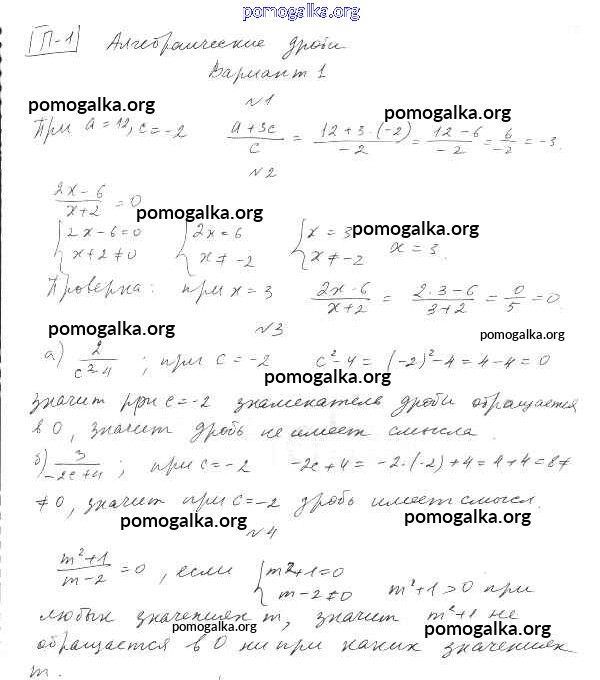 pomogalka.org
П-1 Алгебраические дроби
Вариант 1
№1
pomogalka.org pomogalka.org
При a = 12, c = -2 (a+3c)/c = (12+3·(-2))/(-2) = (12-6)/(-2) = 6/(-2) = -3.
№2
(2x-6)/(x+2) = 0
pomogalka.org pomogalka.org
{2x-6=0 {2x=6 {x=3
{x+2≠0 {x≠-2 {x≠-2 x = 3.
Проверка: при x = 3 (2x-6)/(x+2) = (2·3-6)/(3+2) = 0/5 = 0.
pomogalka.org №3 pomogalka.org
а) 2/(c²-4) ; при c = -2 c²-4 = (-2)²-4 = 4-4 = 0
pomogalka.org
значит при c=-2 знаменатель дроби обращается
в 0, значит дробь не имеет смысла.
б) 3/(-2c+4) ; при c = -2 -2c+4 = -2·(-2)+4 = 4+4 = 8 ≠
≠ 0, значит при c = -2 дробь имеет смысл.
pomogalka.org pomogalka.org
№4
(m²+1)/(m-2) = 0, если {m²+1=0
{m-2≠0 m²+1>0 при
любых значениях m, значит m²+1 не
pomogalka.org pomogalka.org
обращается в 0 ни при каких значениях
m.